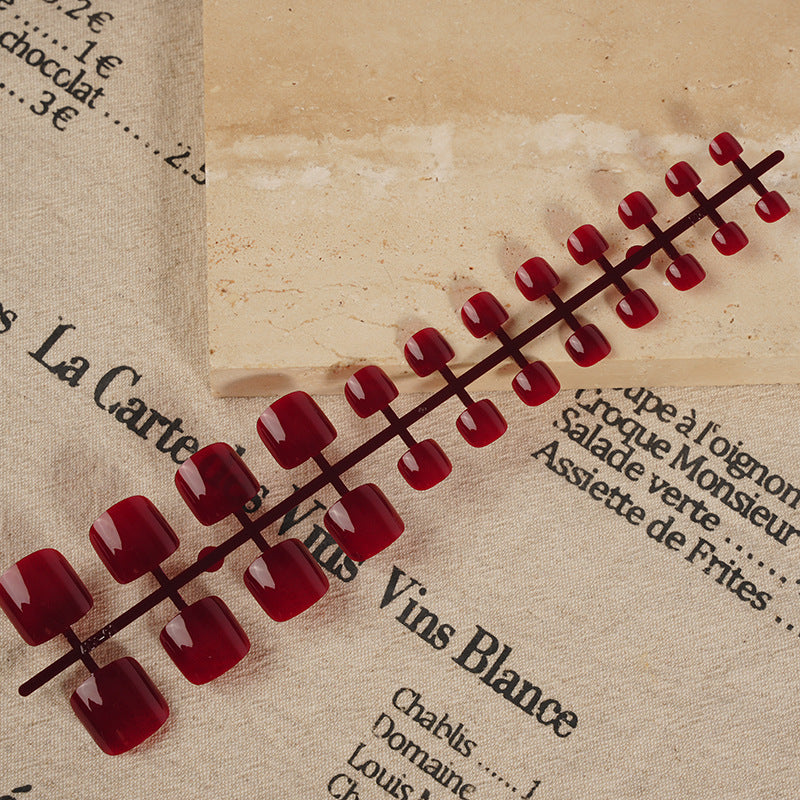 .2€
...... 1€
chocolat
.... 3€
...... 2.5
La Carte des Vins
Vins Blance
Chablis ...... 1
Domaine
Louis
à l'oignon
Croque Monsieur
Salade verte ......
Assiette de Frites ...